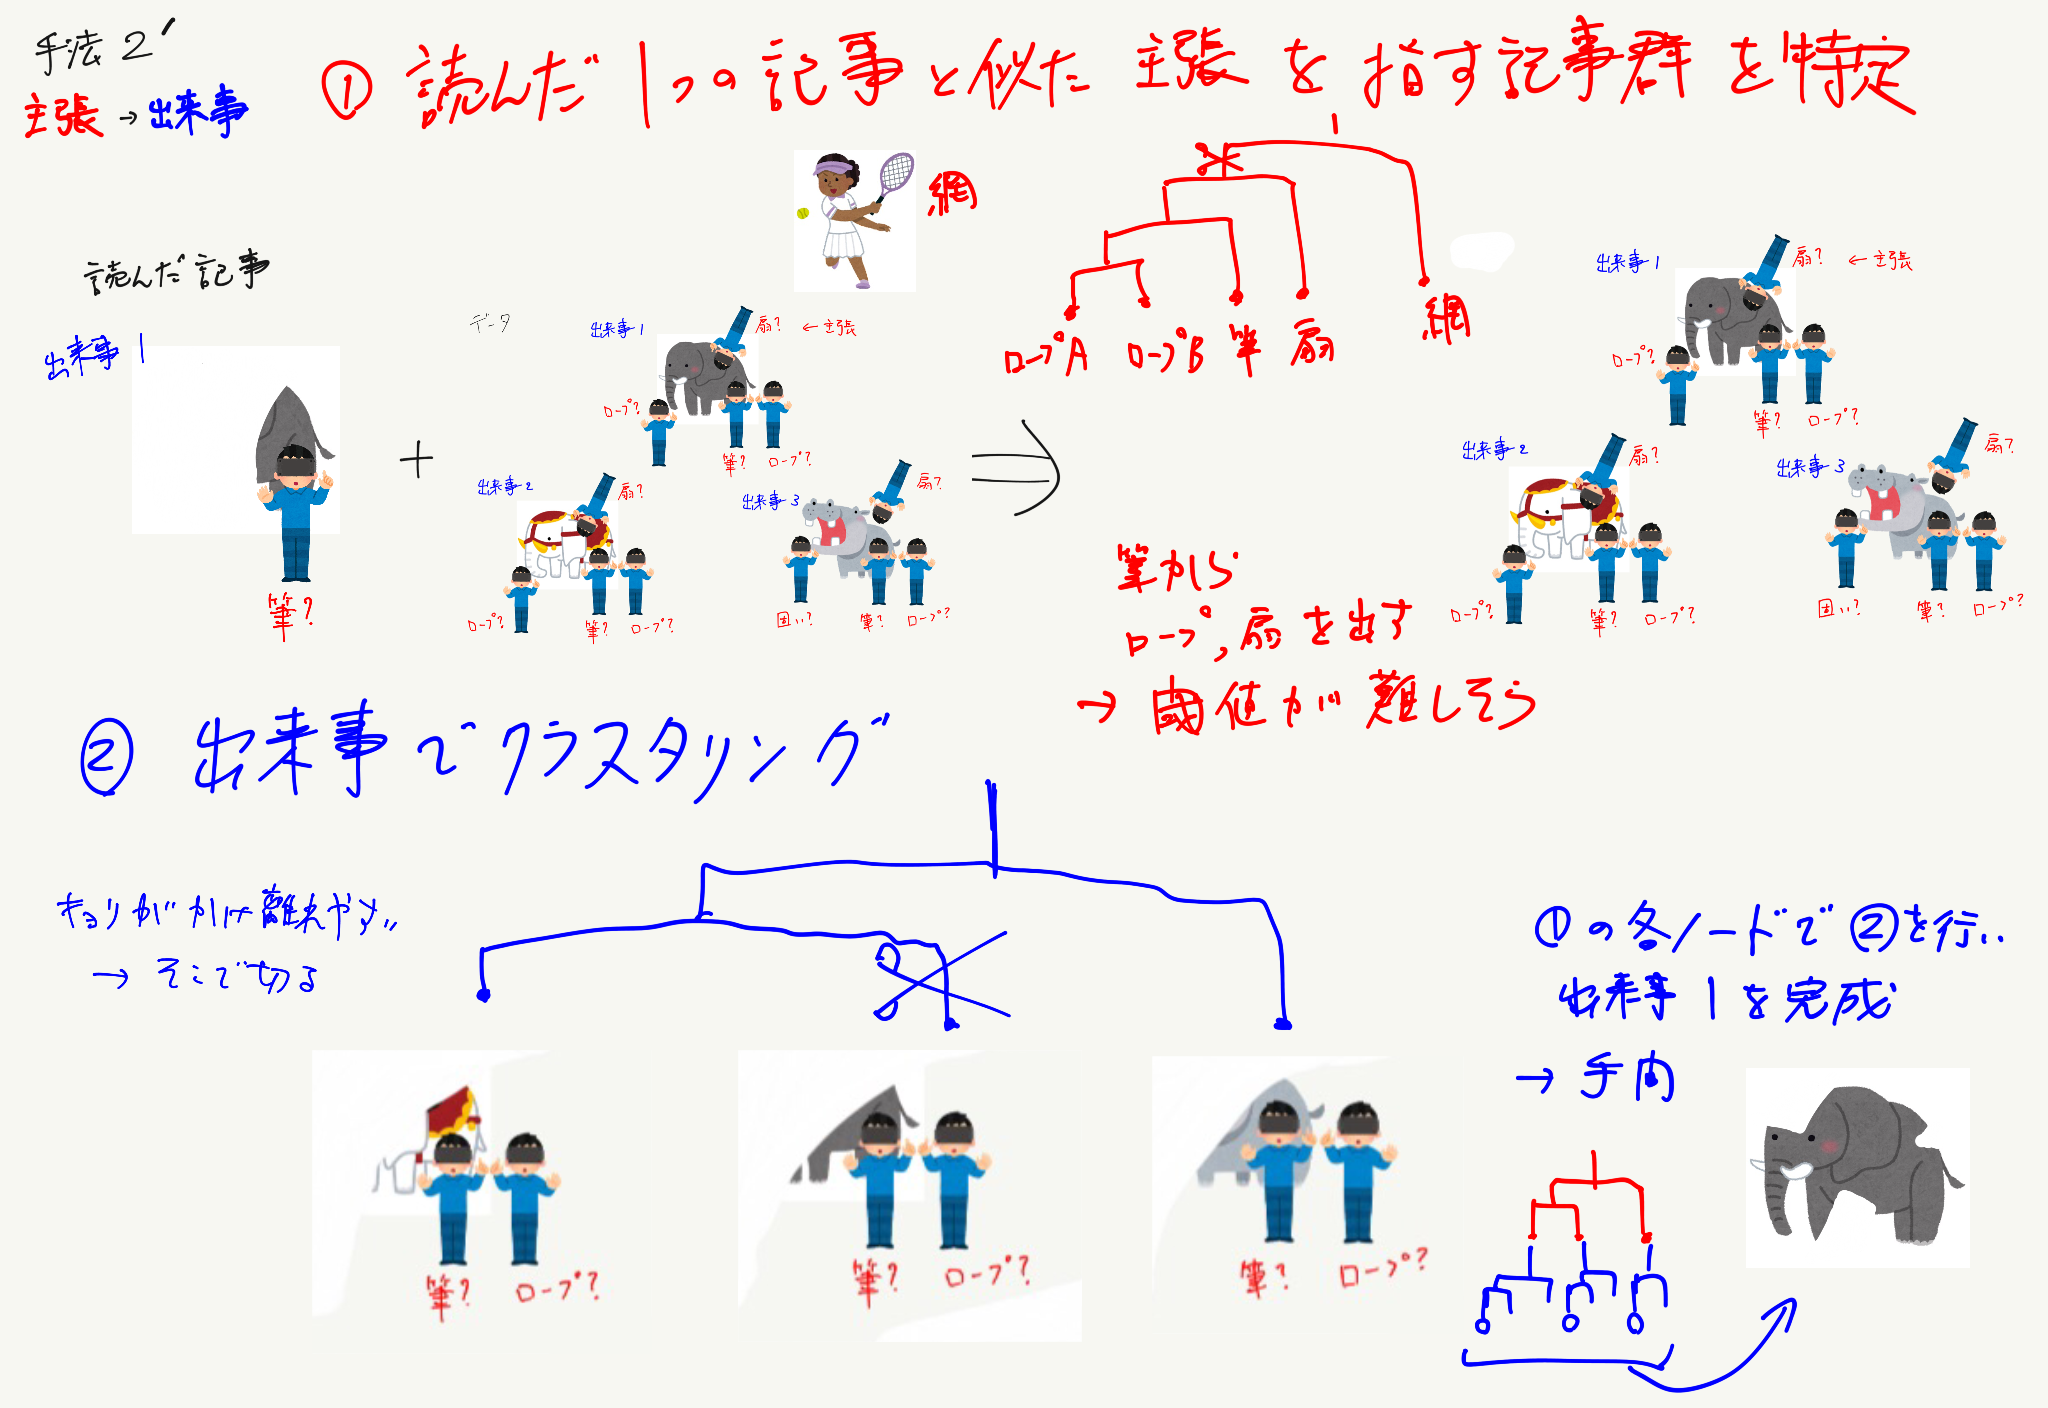 手法2'
主張→出来事
① 読んだ1つの記事と似た主張を指す記事群を特定
網
読んだ記事
出来事1
筆?
+
データ
出来事1
扇?
←主張
ロープ?
筆?
ロープ?
出来事2
扇?
ロープ?
筆?
ロープ?
出来事3
扇?
固い?
筆?
ロープ?
ロープA ロープB 筆 扇 網
出来事1
扇?
←主張
ロープ?
筆?
ロープ?
出来事2
扇?
ロープ?
筆?
ロープ?
出来事3
扇?
固い?
筆?
ロープ?
筆から
ロープ,扇を出す
→ 閾値が難しそう
② 出来事でクラスタリング
キョリがかけ離れやすい
→ そこで切る
筆? ロープ?
筆? ロープ?
筆? ロープ?
①の各ノードで②を行い
出来事1を完成
→ 手間